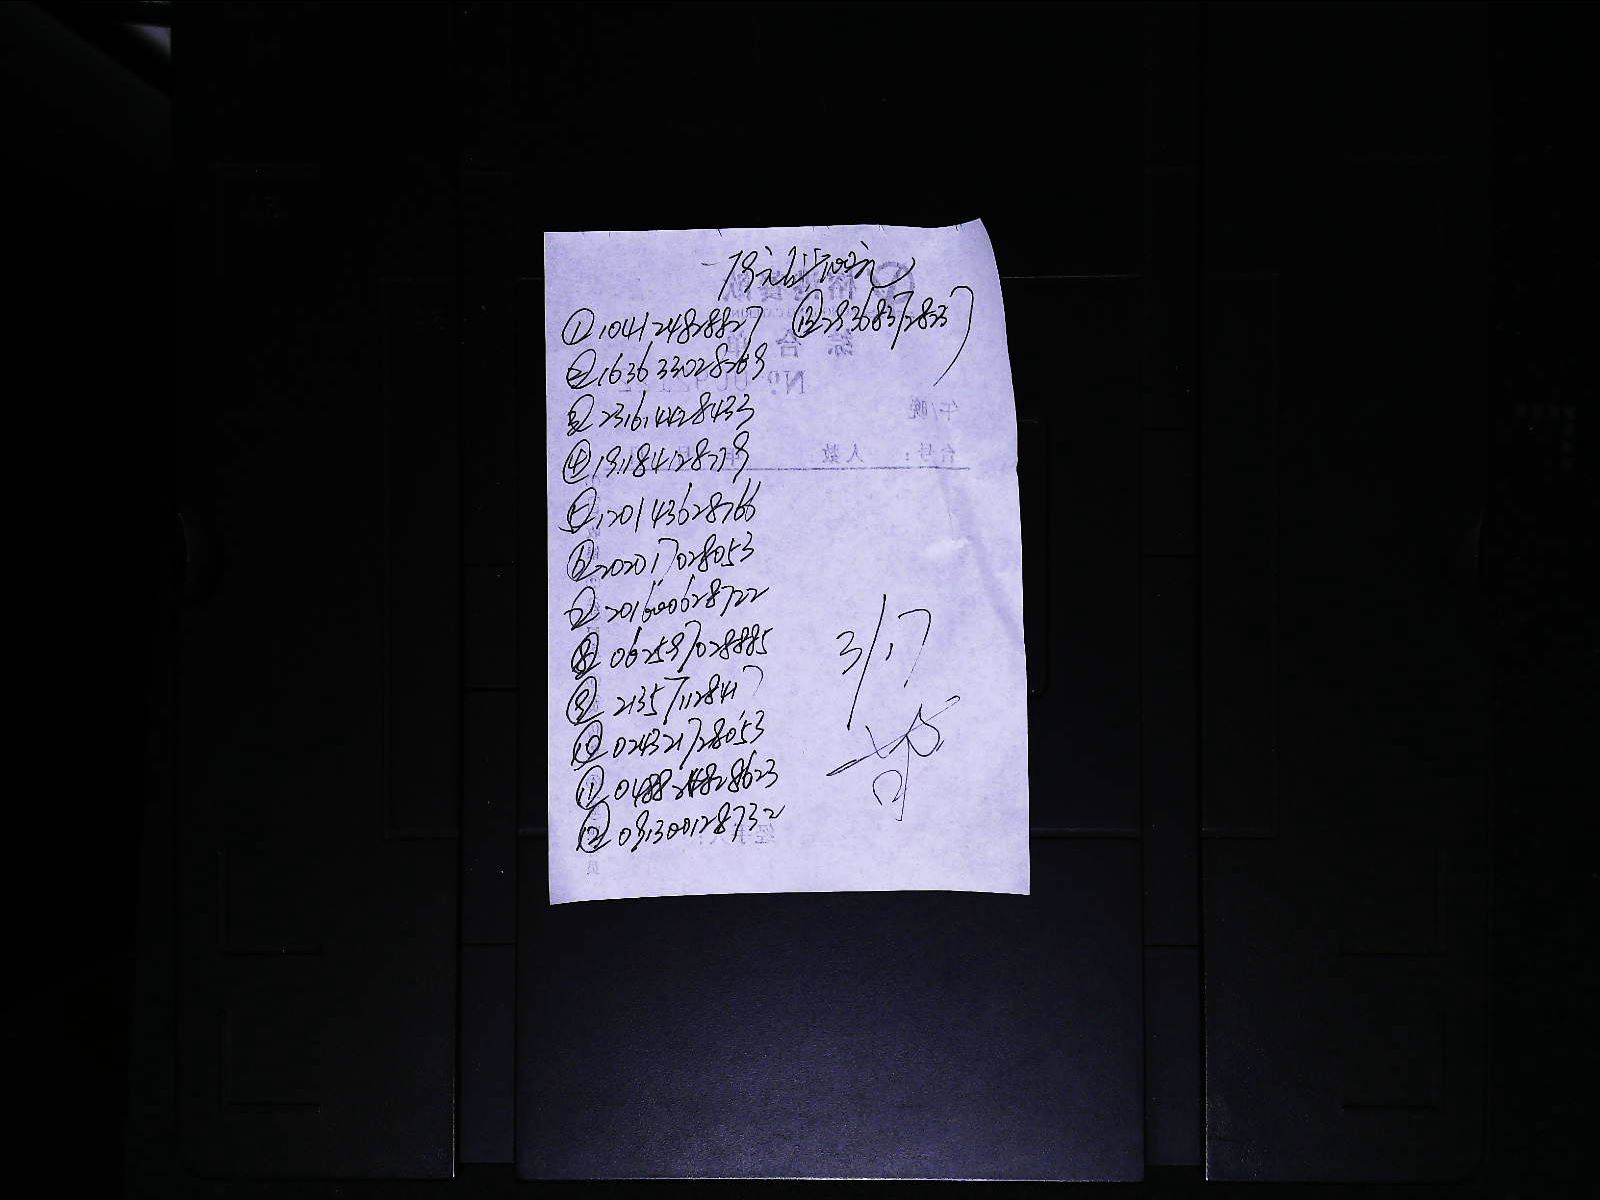 79元抵100元
①104124828827 ⑬293683728237
②163633028769
③231614428433
④191184128779
⑤120143628766
⑥202017028053
⑦201600628722
⑧062597028885
⑨213571128417
⑩024321728053
⑪048824828623
⑫091300128732
3/17